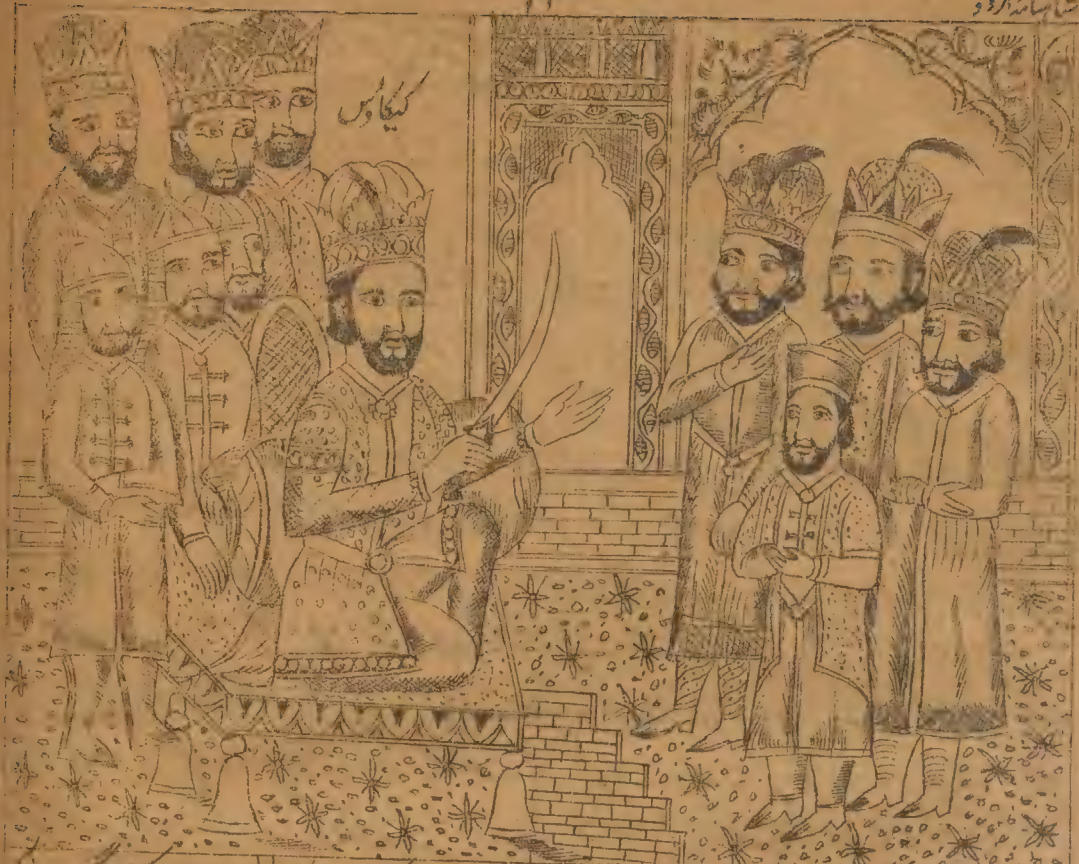 شاہنامہ اردو
کیکاؤس